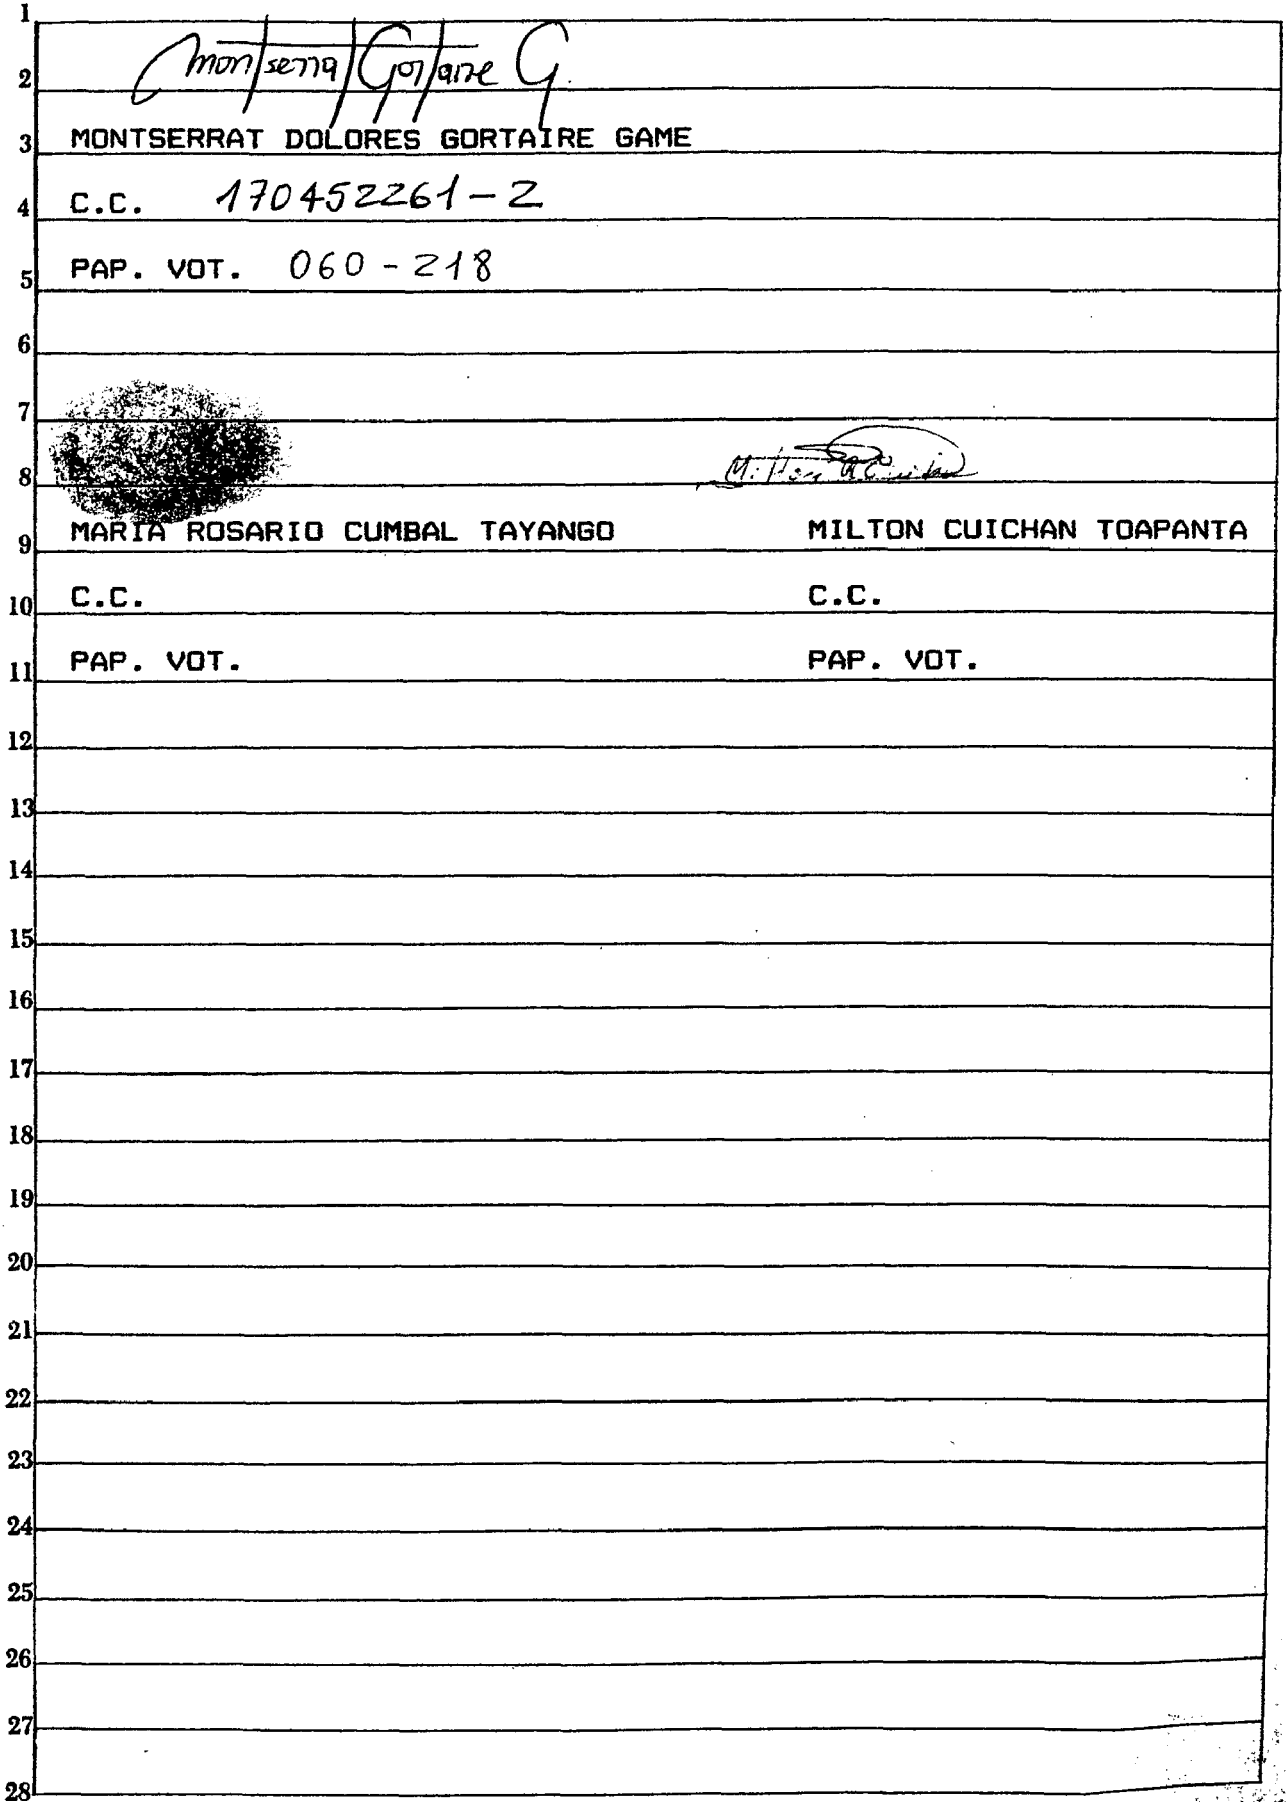 1
Montserrat Gortaire G.
2
3 MONTSERRAT DOLORES GORTAIRE GAME
4 C.C. 170452261-2
5 PAP. VOT. 060-218
6
7
8
9 MARIA ROSARIO CUMBAL TAYANGO MILTON CUICHAN TOAPANTA
10 C.C. C.C.
11 PAP. VOT. PAP. VOT.
12
13
14
15
16
17
18
19
20
21
22
23
24
25
26
27
28